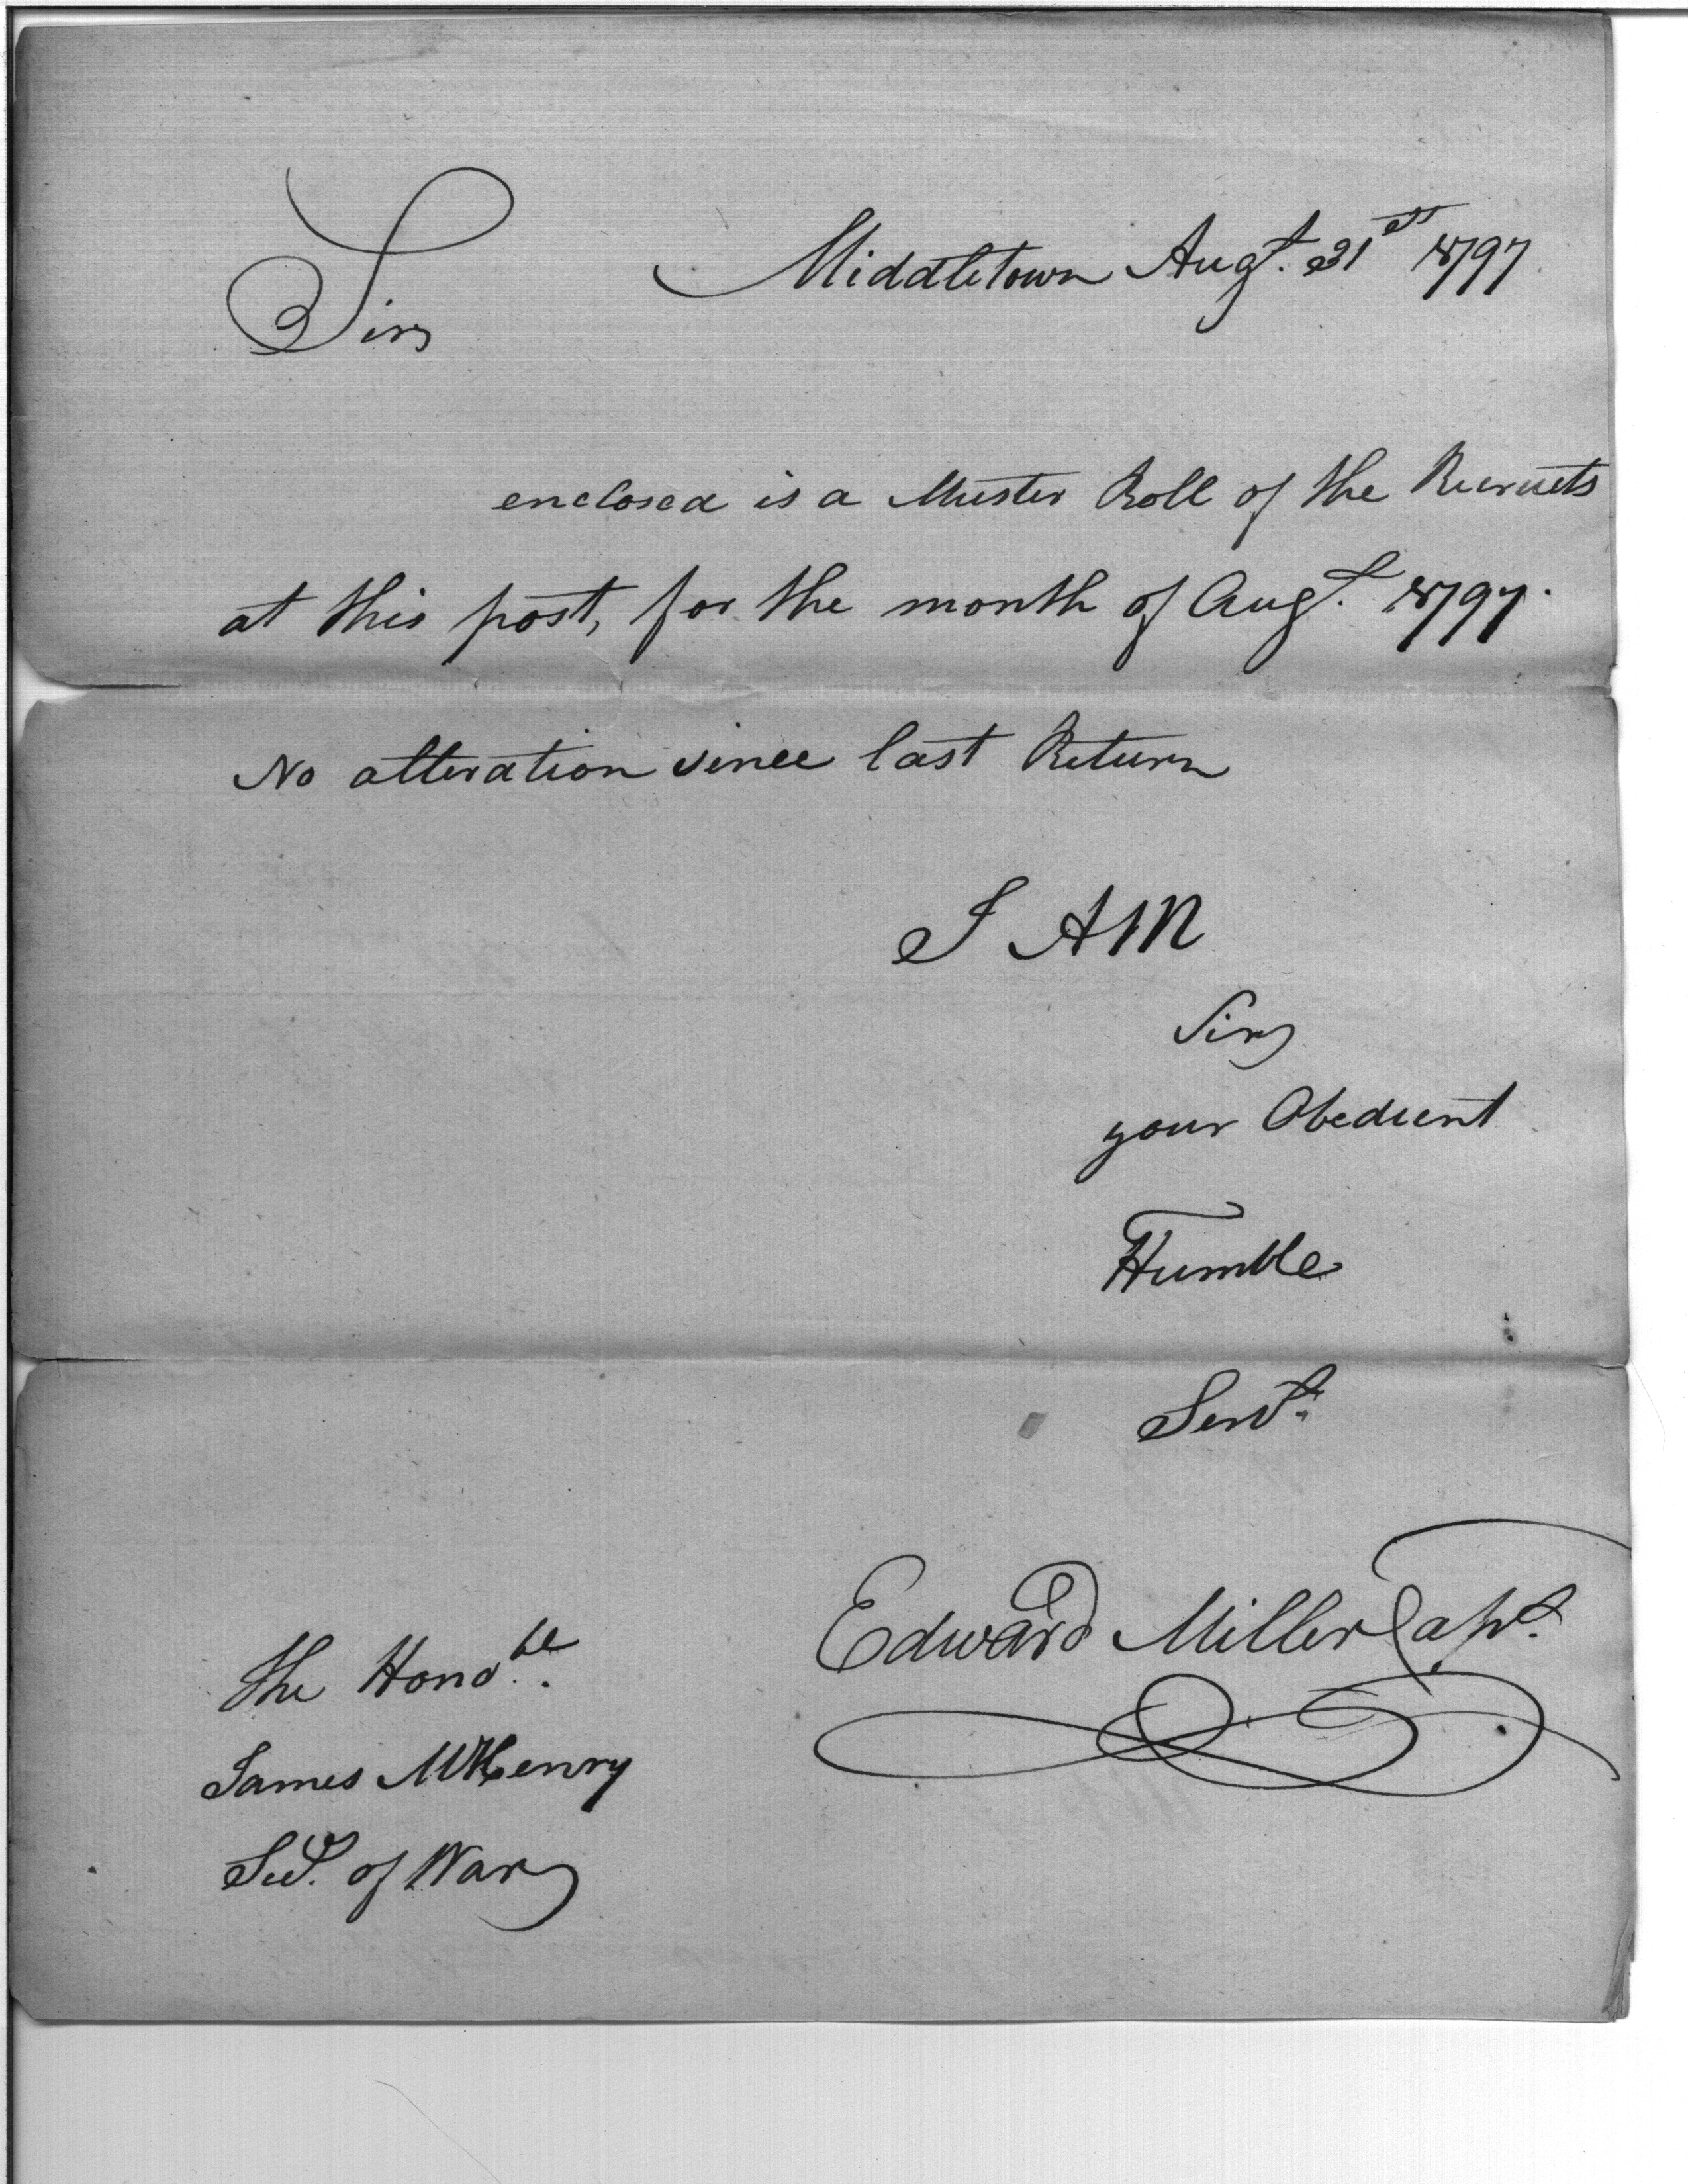 Middletown Augt. 31st 1797.
Sir
enclosed is a Muster Roll of the Recruits
at this post, for the month of Augt. 1797.
No alteration since last Return
I AM
Sir
your Obedient
Humble
Servt.
Edward Miller Capt.
the Honobe.
James McHenry
Secy. of War